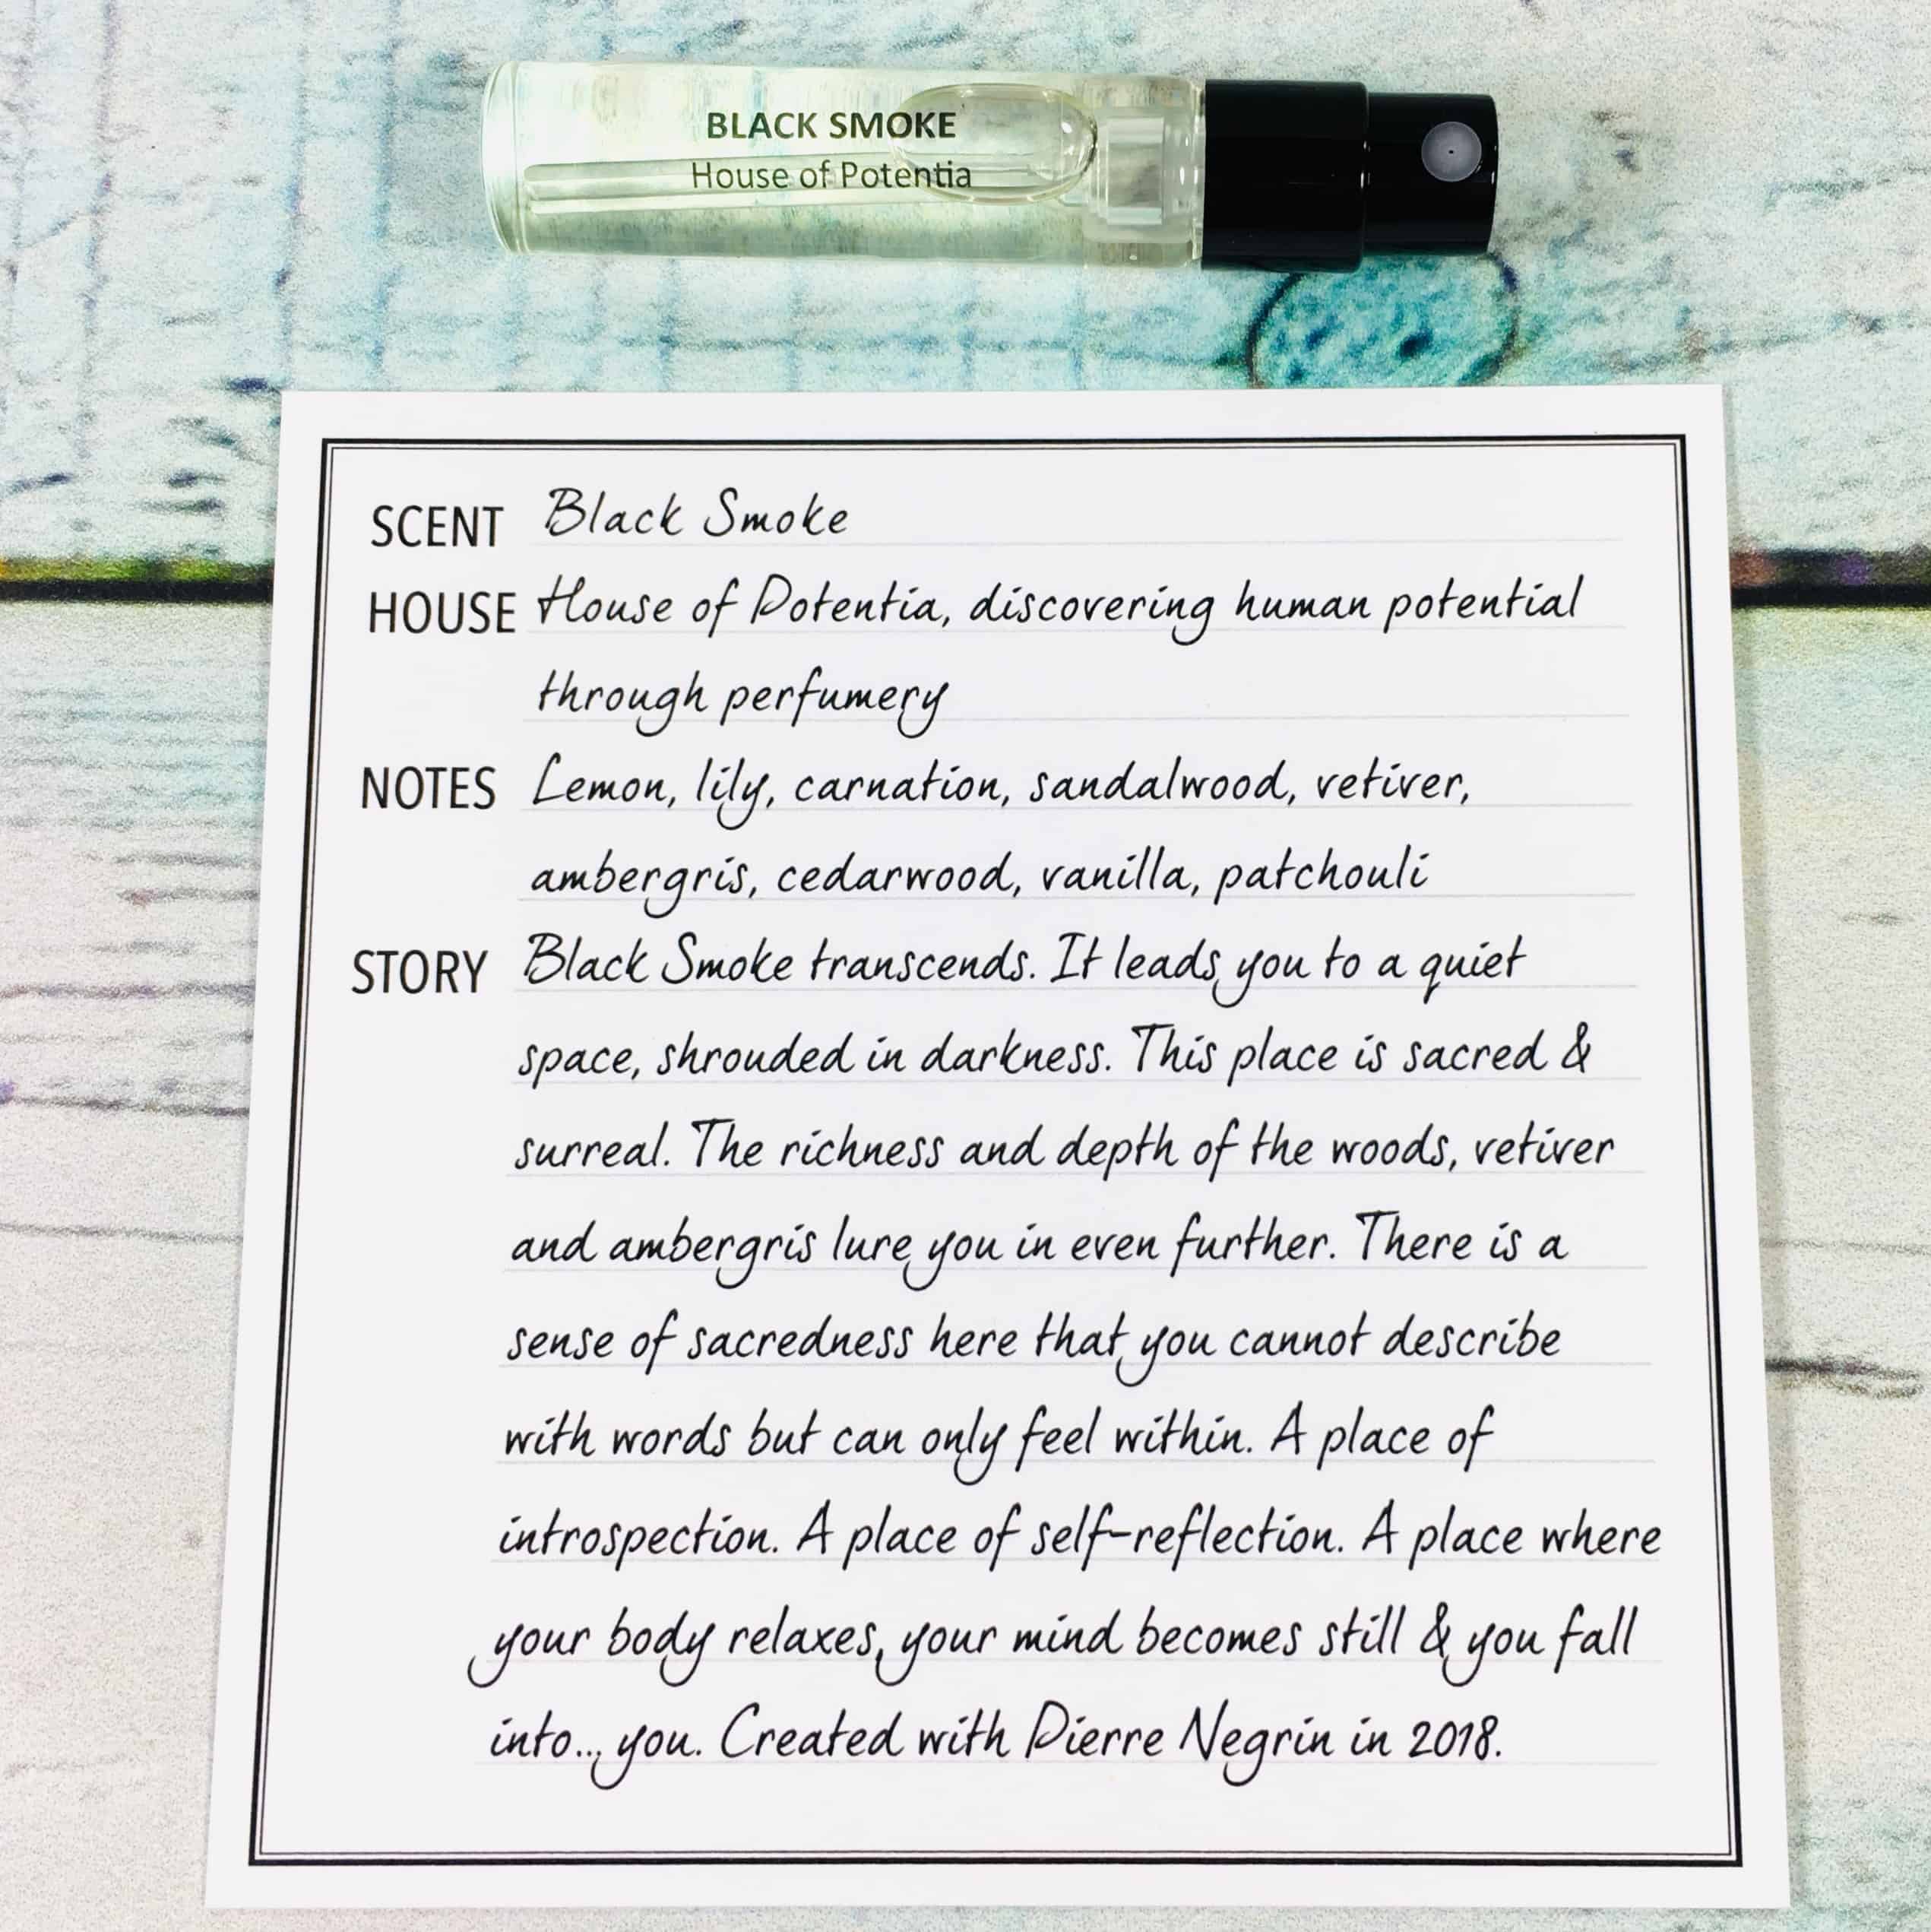 BLACK SMOKE
House of Potentia
SCENT Black Smoke
HOUSE House of Potentia, discovering human potential
through perfumery
NOTES Lemon, lily, carnation, sandalwood, vetiver,
ambergris, cedarwood, vanilla, patchouli
STORY Black Smoke transcends. It leads you to a quiet
space, shrouded in darkness. This place is sacred &
surreal. The richness and depth of the woods, vetiver
and ambergris lure you in even further. There is a
sense of sacredness here that you cannot describe
with words but can only feel within. A place of
introspection. A place of self-reflection. A place where
your body relaxes, your mind becomes still & you fall
into... you. Created with Pierre Negrin in 2018.